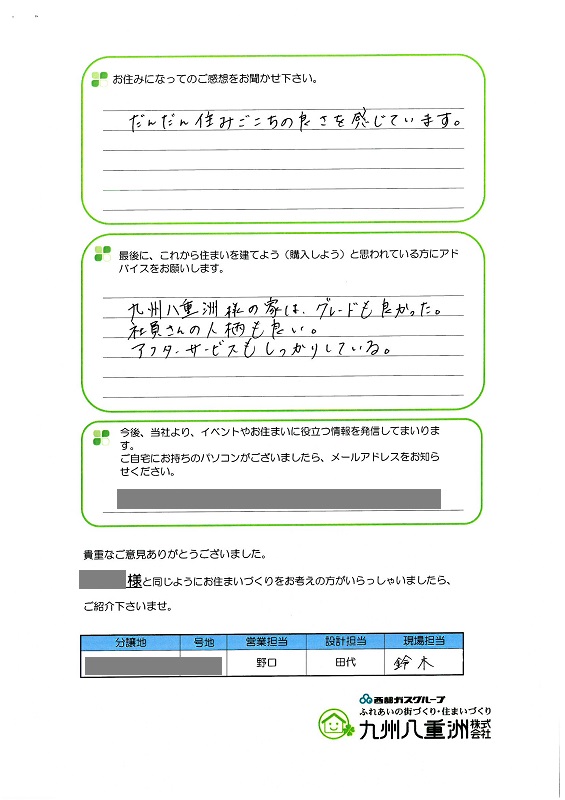 お住みになってのご感想をお聞かせ下さい。
だんだん住みごこちの良さを感じています。
最後に、これから住まいを建てよう（購入しよう）と思われている方にアド
バイスをお願いします。
九州八重洲様の家は、グレードも良かった。
社員さんの人柄も良い。
アフターサービスもしっかりしている。
今後、当社より、イベントやお住まいに役立つ情報を発信してまいりま
す。
ご自宅にお持ちのパソコンがございましたら、メールアドレスをお知ら
せください。
貴重なご意見ありがとうございました。
様と同じようにお住まいづくりをお考えの方がいらっしゃいましたら、
ご紹介下さいませ。
分譲地 号地 営業担当 設計担当 現場担当
野口 田代 鈴木
西部ガスグループ
ふれあいの街づくり・住まいづくり
九州八重洲株式会社